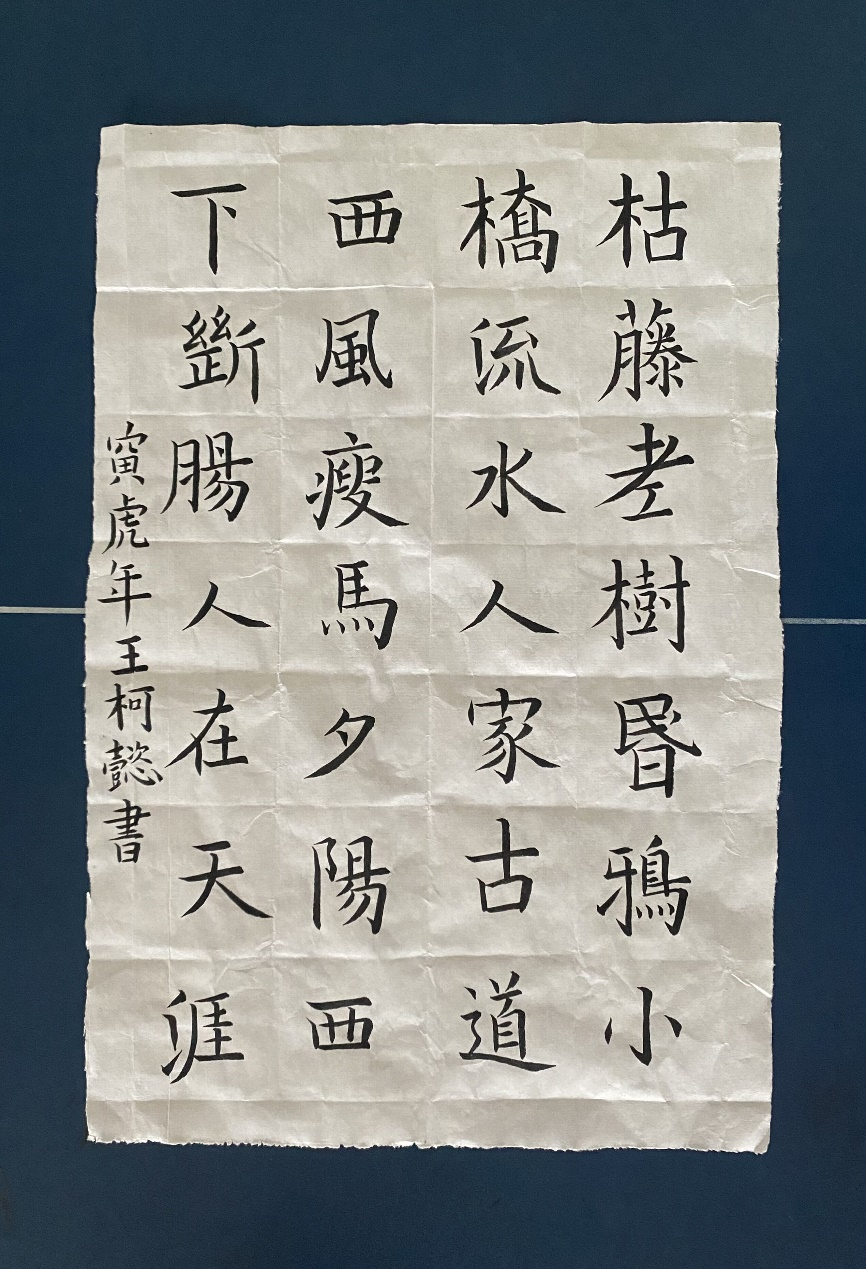 枯藤老樹昬鴉小
橋流水人家古道
西風瘦馬夕陽西
下斷腸人在天涯
寅虎年王柯懿書